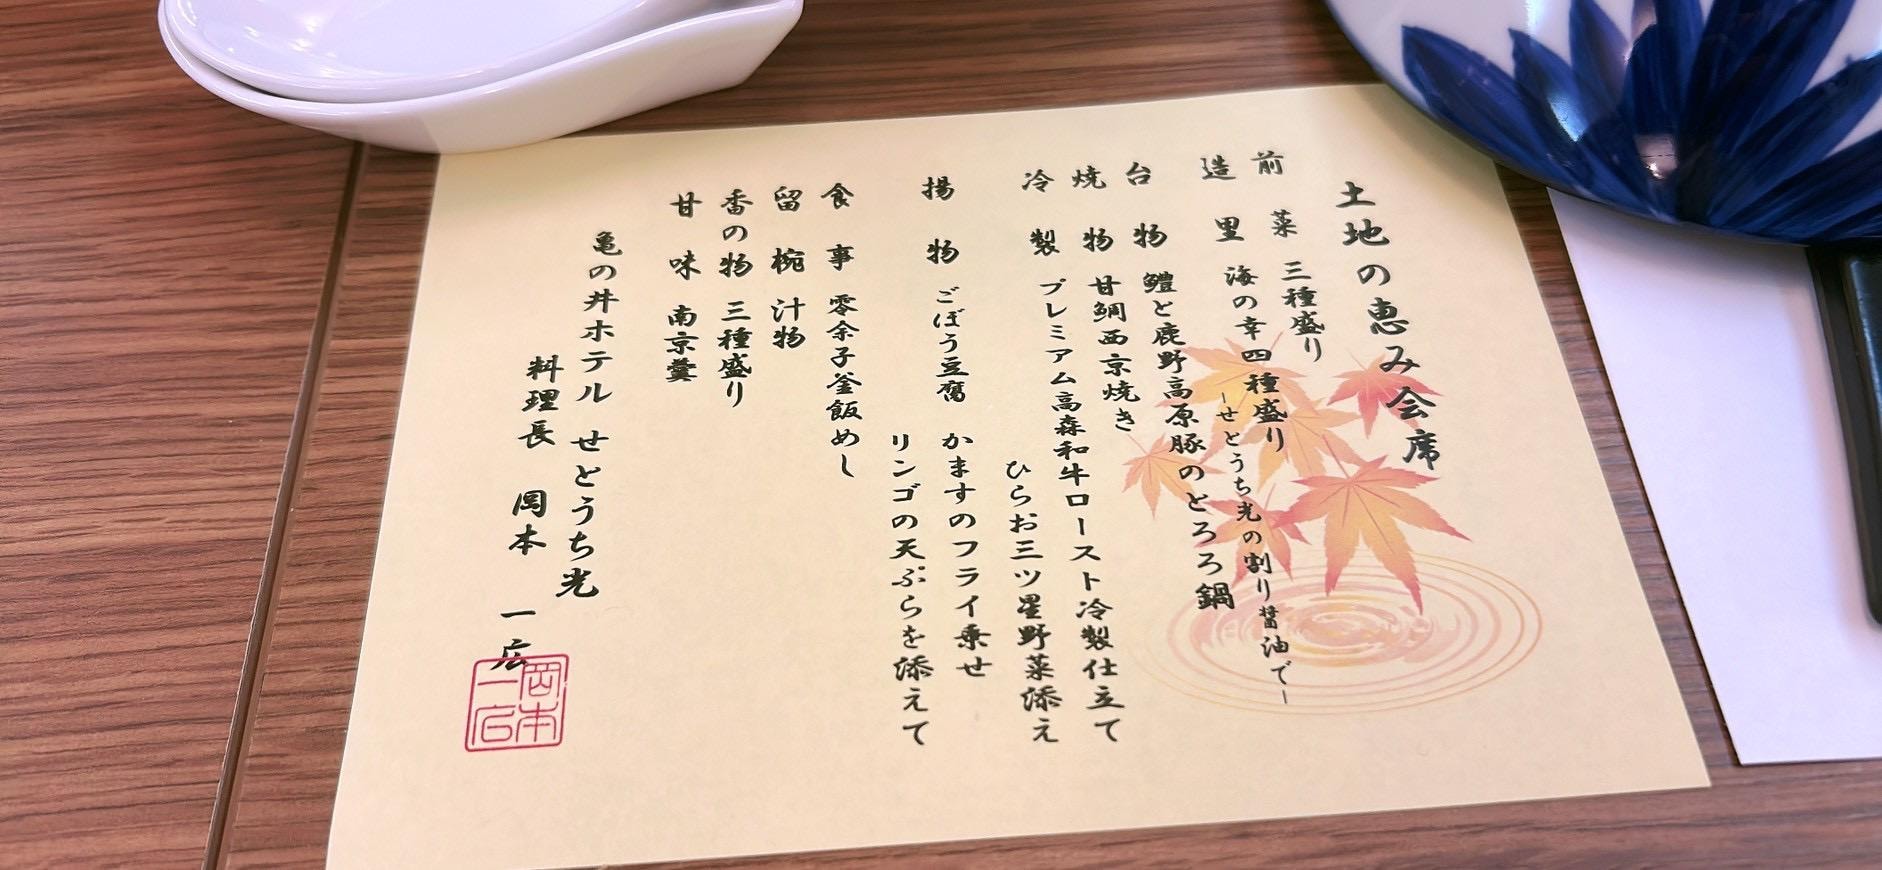 土地の恵み会席
前菜 三種盛り
造里 海の幸四種盛り
-せとうち光の割り醤油で-
台物 鱧と鹿野高原豚のとろろ鍋
焼物 甘鯛西京焼き
冷製 プレミアム高森和牛ロースト冷製仕立て
ひらお三ツ星野菜添え
揚物 ごぼう豆腐 かますのフライ乗せ
リンゴの天ぷらを添えて
食事 零余子釜飯めし
留椀 汁物
香の物 三種盛り
甘味 南京羹
亀の井ホテル せとうち光
料理長 岡本 一広
岡本
一広